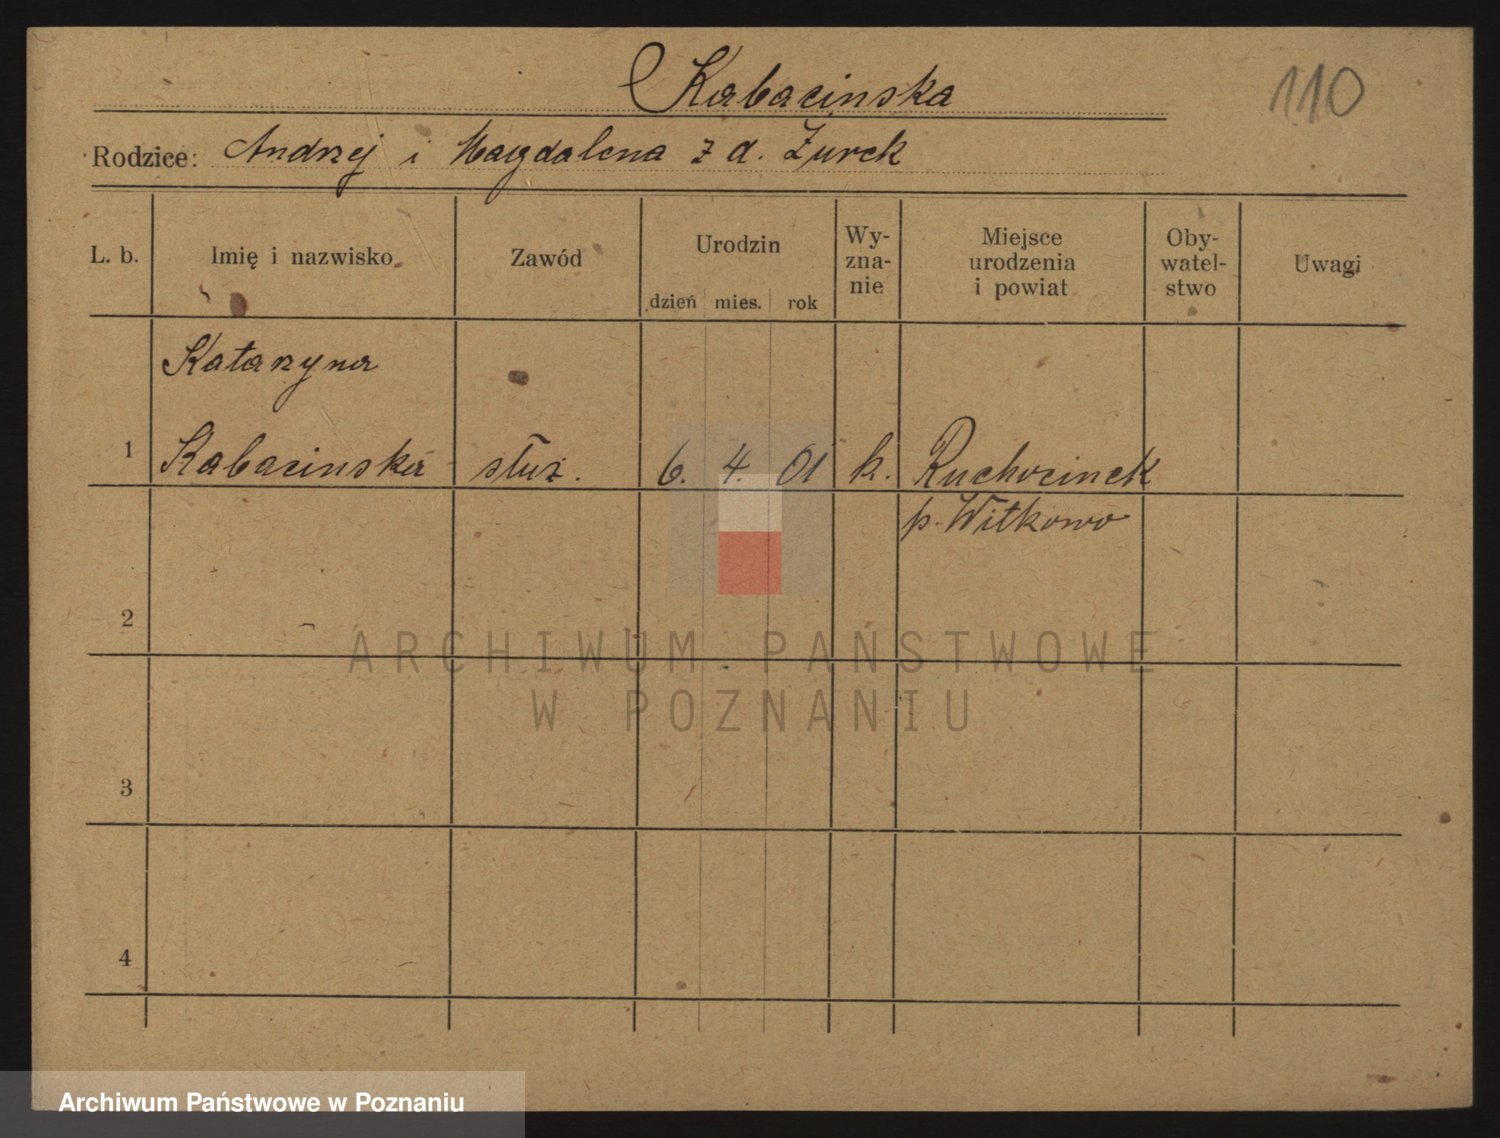 Kabacinska
110
Rodzice: Andrzej i Magdalena z d. Żurek
L. b.
Imię i nazwisko
Zawód
Urodzin
dzień mies. rok
Wy-
zna-
nie
Miejsce
urodzenia
i powiat
Oby-
watel-
stwo
Uwagi
Katarzyna
1 Kabacinska służ. 6. 4. 01 k. Ruchocinek
p. Witkowo
2
ARCHIWUM PAŃSTWOWE
W POZNANIU
3
4
Archiwum Państwowe w Poznaniu